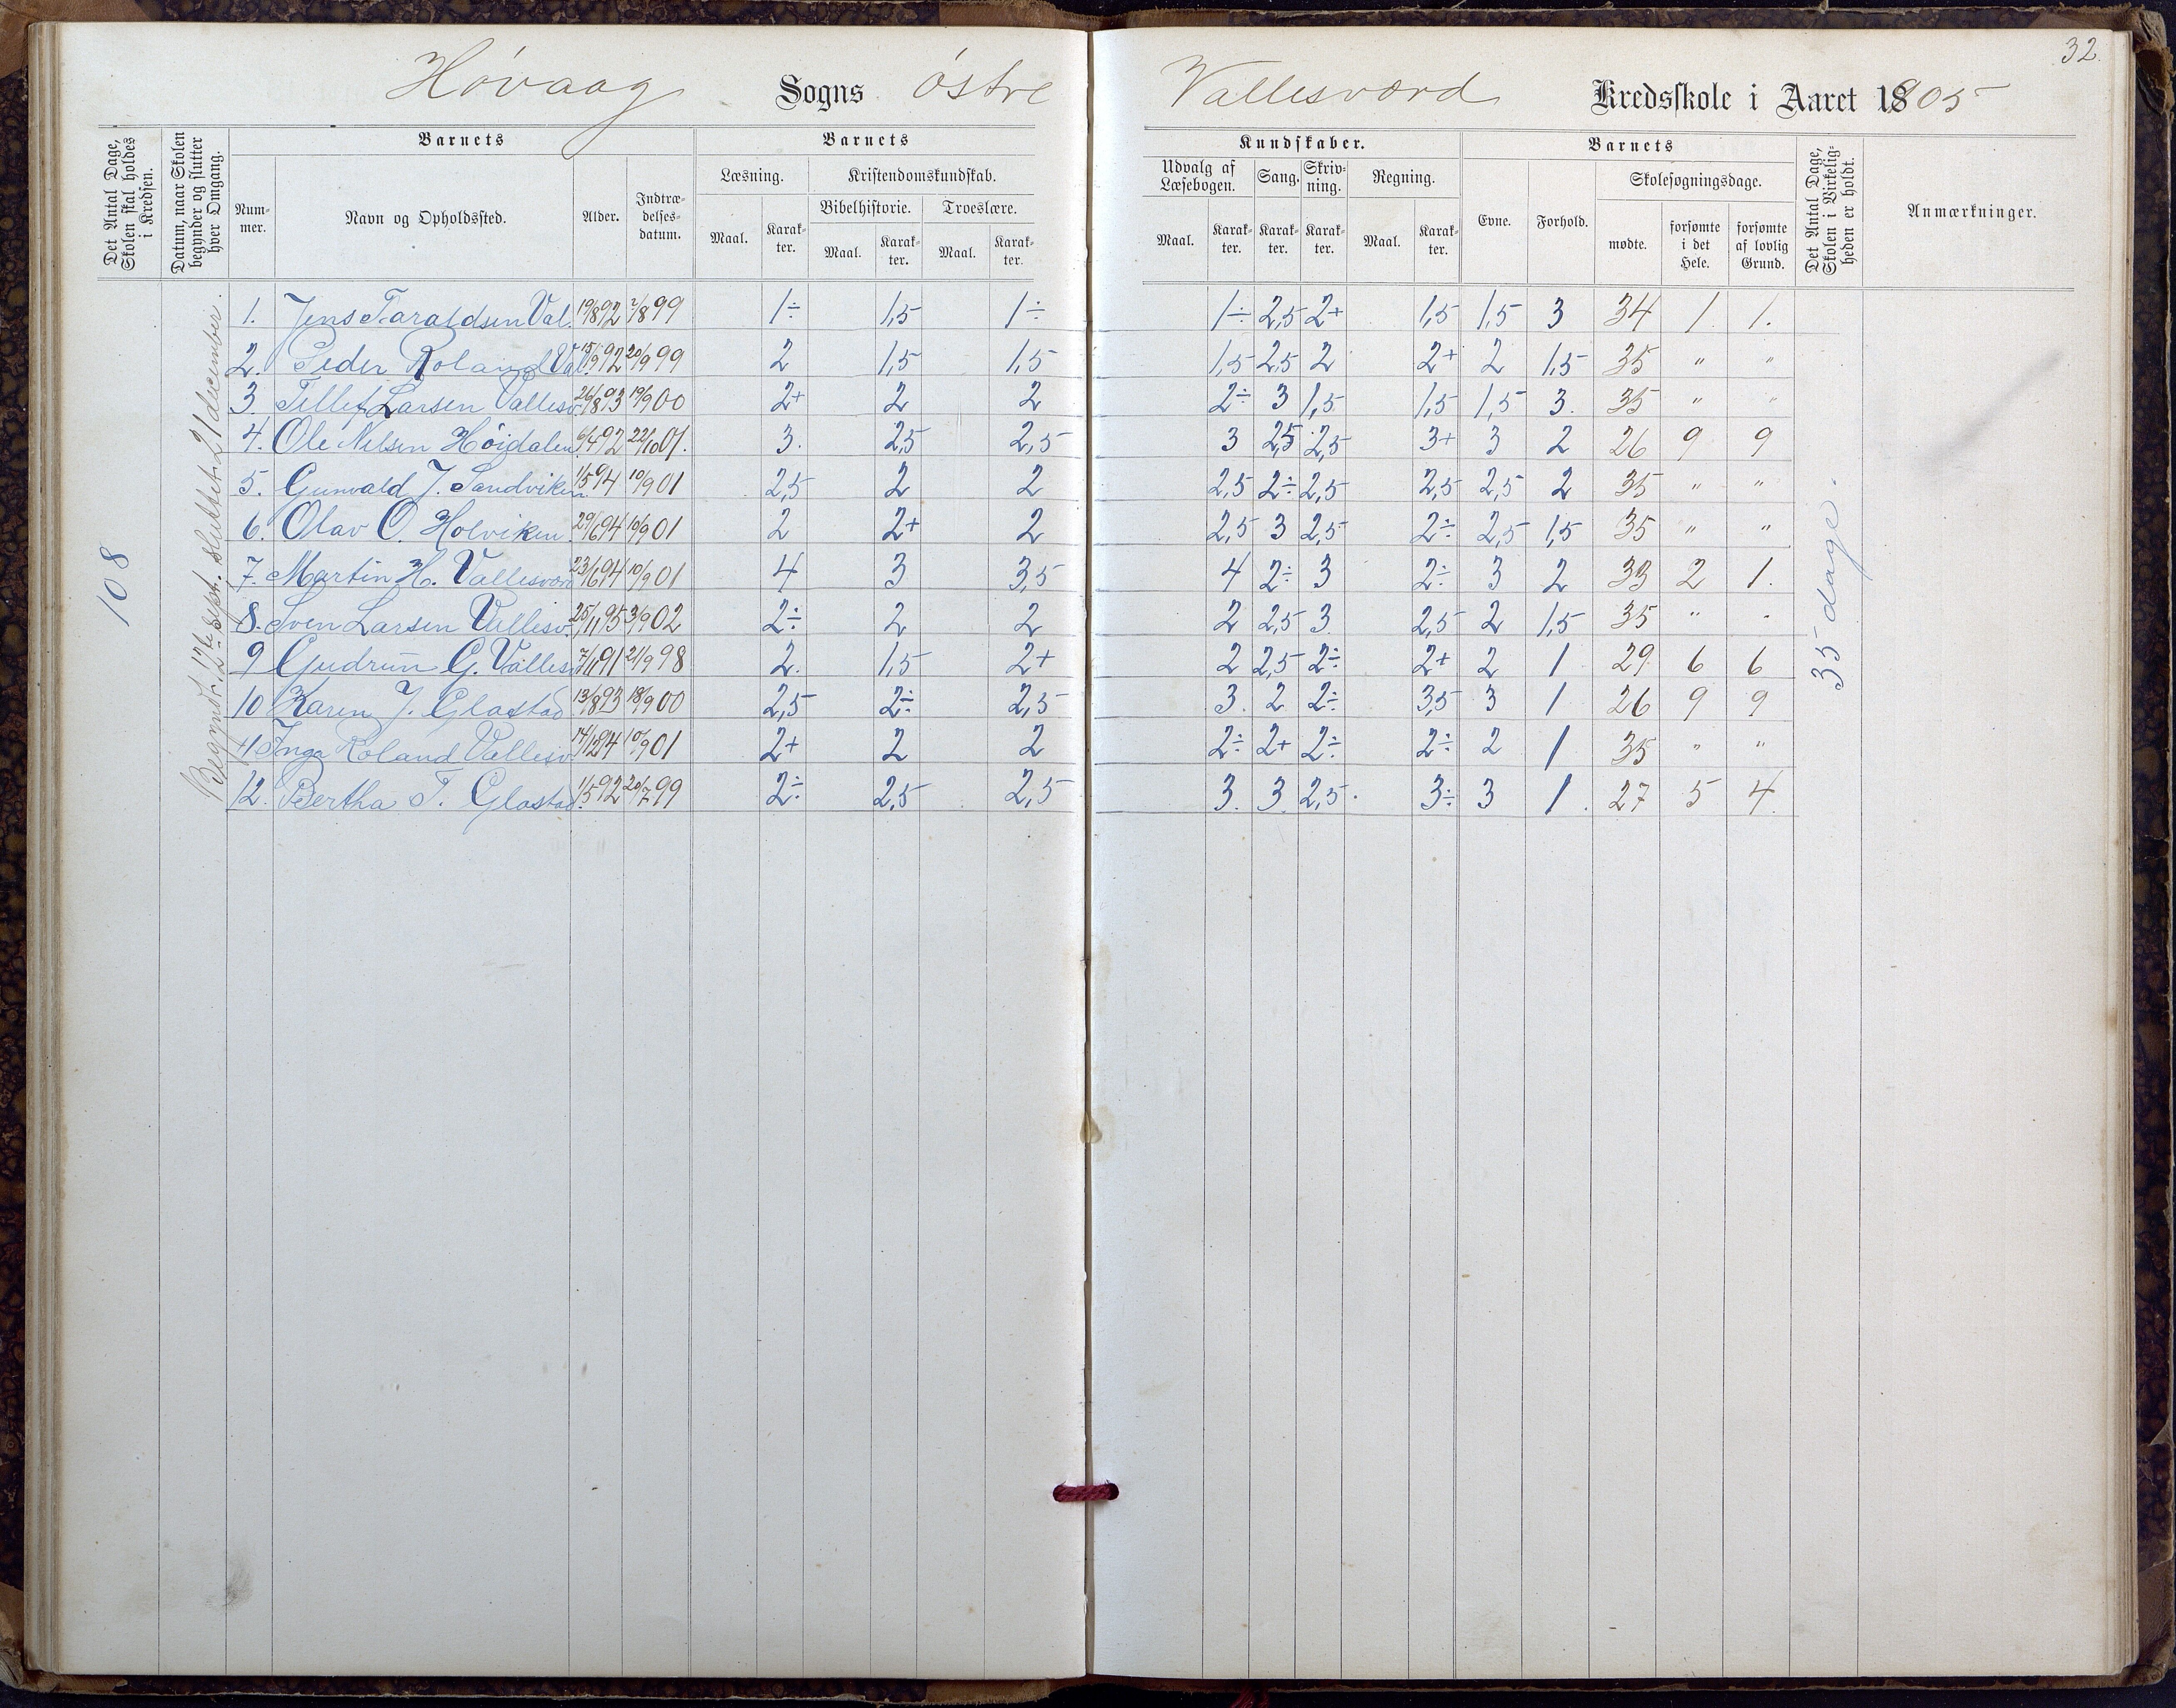 32.
Høvaag Sogns østre Vallesværd Kredsskole i Aaret 1905
Det Antal Dage, Skolen skal holdes i Kredsen.
Datum, naar Skolen begynder og slutter hver Omgang.
Barnets
Barnets
Kundskaber.
Barnets
Det Antal Dage, Skolen i Virkeligheden er holdt.
Anmærkninger.
Num-mer. Navn og Opholdssted. Alder. Indtræ-delses-datum.
Læsning. Kristendomskundskab. Udvalg af Læsebogen. Sang. Skriv-ning. Regning. Evne. Forhold. Skolesøgningsdage.
Bibelhistorie. Troeslære.
Maal. Karak-ter. Maal. Karak-ter. Maal. Karak-ter. Maal. Karak-ter. Karak-ter. Karak-ter. Maal. Karak-ter. mødte. forsømte i det Hele. forsømte af lovlig Grund.
108
Begynt 12te sept. sluttet 21 december.
1. Jens Taraldsen Val. 19/8 92 2/8 99 1÷ 1,5 1÷ 1÷ 2,5 2+ 1,5 1,5 3 34 1 1.
2. Peder Roland Val. 15/9 92 20/9 99 2 1,5 1,5 1,5 2,5 2 2+ 2 1,5 35 " "
3. Tellef Larsen Vallesv. 26/8 93 19/9 00 2+ 2 2 2÷ 3 1,5 1,5 1,5 3. 35 " "
4. Ole Nilsen Höigdalen 6/4 92 22/10 01. 3. 2,5 2,5 3 2,5 2,5 3+ 3 2 26 9 9
5. Gunvald J. Sandviken 1/5 94 10/9 01 2,5 2 2 2,5 2÷ 2,5 2,5 2,5 2 35 " "
6. Olav O. Holviken 29/6 94 10/9 01 2 2+ 2 2,5 3 2,5 2÷ 2,5 1,5 35 " "
7. Martin H. Vallesværd 23/6 94 10/9 01 4 3 3,5 4 2÷ 3 2÷ 3 2 33 2 1.
8. Sven Larsen Vallesv. 25/11 95 3/9 02 2÷ 2 2 2 2,5 3 2,5 2 1,5 35 " "
9 Gudrun G. Vallesv. 7/11 91 21/9 98 2. 1,5 2+ 2 2,5 2÷ 2+ 2 1 29 6 6
10 Karen J. Glastad 13/8 93 18/9 00 2,5 2÷ 2,5 3. 2 2÷ 3,5 3 1 26 9 9
11 Inga Roland Vallesv. 10/9 01 2+ 2 2 2÷ 2+ 2÷ 2÷ 2 1 35 " "
12. Bertha T. Glastad. 1/5 92 20/7 99 2÷ 2,5 2,5 3. 3 2,5. 3÷ 3 1. 27 5 4.
35 dage.